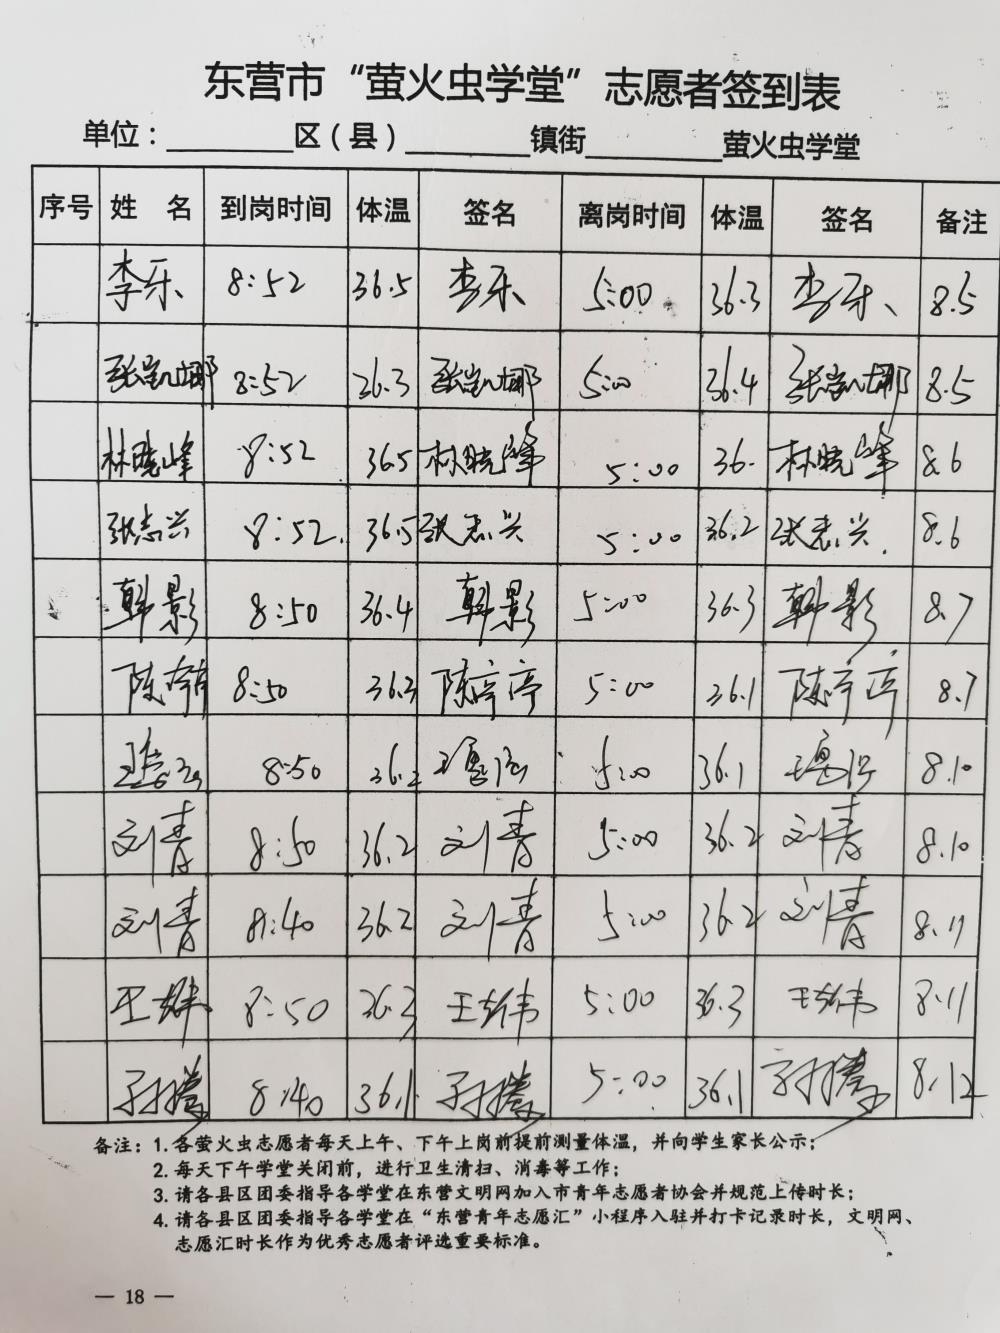 东营市“萤火虫学堂”志愿者签到表
单位：________区（县）________镇街________萤火虫学堂
序号 姓 名 到岗时间 体温 签名 离岗时间 体温 签名 备注
李乐 8:52 36.5 李乐 5:00 36.3 李乐 8.5
张凯娜 8:52 36.3 张凯娜 5:00 36.4 张凯娜 8.5
林晓峰 8:52 36.5 林晓峰 5:00 36. 林晓峰 8.6
张志兴 8:52 36.5 张志兴 5:00 36.2 张志兴 8.6
韩影 8:50 36.4 韩影 5:00 36.3 韩影 8.7
陈 8:50 36.3 陈亭亭 5:00 36.1 陈亭亭 8.7
8:50 36.2 5:00 36.1 8.10
刘青 8:50 36.2 刘青 5:00 36.2 刘青 8.10
刘青 8:40 36.2 刘青 5:00 36.2 刘青 8.11
王 8:50 36.3 王 5:00 36.3 王 8.11
8:40 36.1 5:00 36.1 8.12
备注：1. 各萤火虫志愿者每天上午、下午上岗前提前测量体温，并向学生家长公示；
2. 每天下午学堂关闭前，进行卫生清扫、消毒等工作；
3. 请各县区团委指导各学堂在东营文明网加入市青年志愿者协会并规范上传时长；
4. 请各县区团委指导各学堂在“东营青年志愿汇”小程序入驻并打卡记录时长，文明网、
志愿汇时长作为优秀志愿者评选重要标准。
— 18 —